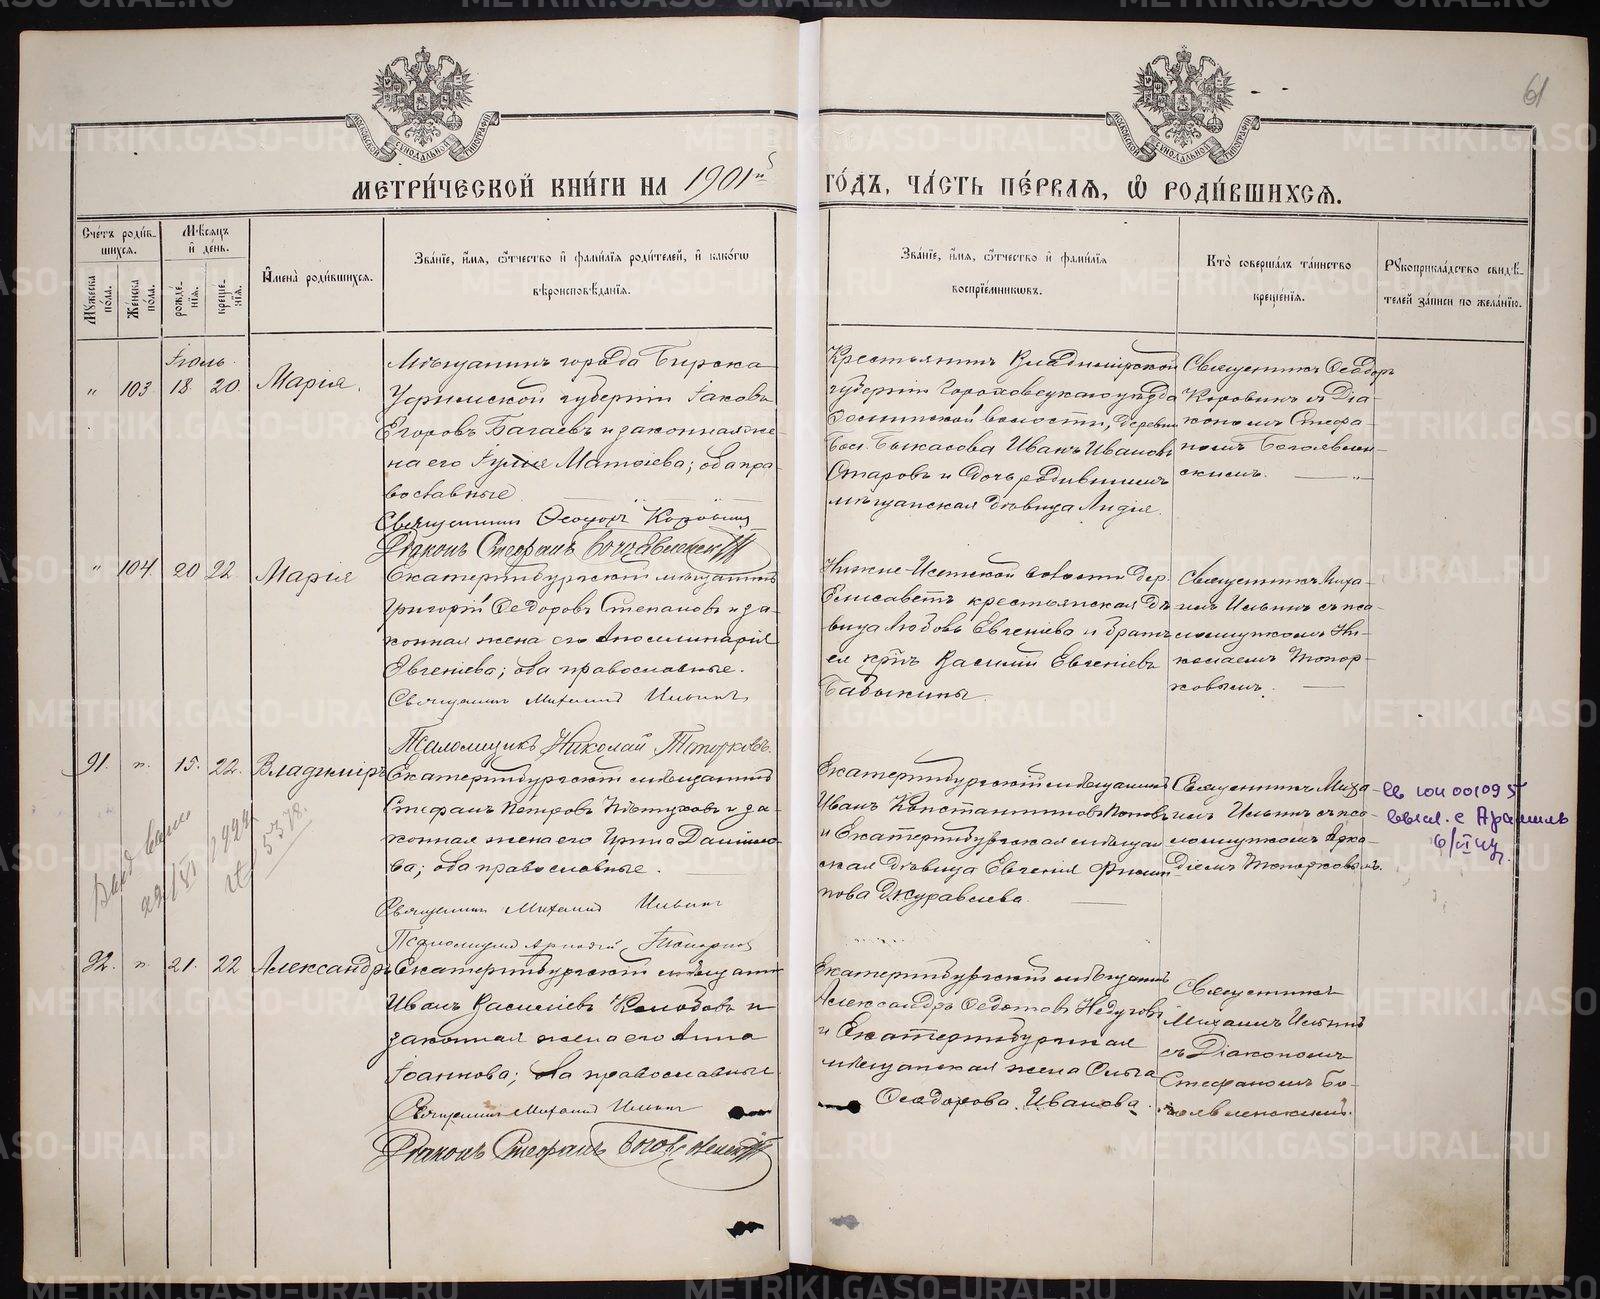 61
МЕТРИЧЕСКОЙ КНИГИ НА 1901й
ГОДЪ, ЧАСТЬ ПЕРВАЯ, Ѿ РОДИВШИХСЯ.
Счетъ родившихся.
Мужеска пола.
Женска пола.
Мѣсяцъ и день.
рожденія.
крещенія.
Имена родившихся.
Званіе, имя, ѿчество и фамилія родителей, и какогѡ
вѣроисповѣданія.
Званіе, имя, ѿчество и фамилія
воспріемникѡвъ.
Кто совершалъ таинство
крещенія.
Рукоприкладство свидѣтелей записи по желанію.
Іюль
" 103 18. 20. Марія.
Мѣщанинъ города Бирска
Уфимской губерніи Іаковъ
Егоровъ Багаевъ и законная же-
на его Іулія Матѳіева; оба пра-
вославные.
Священникъ Ѳеодоръ Коровинъ
Діаконъ Стефанъ Богоявленскій
Крестьянинъ Владимірской
губерніи Гороховецкаго уѣзда
волости, деревни
Иванъ Ивановъ
и дочь родившихъ
мѣщанская дѣвица Лидія.
Священникъ Ѳеодоръ
Коровинъ съ Діа-
кономъ Стефа-
номъ Богоявлен-
скимъ.
" 104 20 22 Марія
Екатеринбургскій мѣщанинъ
Григорій Ѳедоровъ Степановъ и за-
конная жена его Апполинарія
Евгеніева; оба православные.
Священникъ Михаилъ Ильинъ
Псаломщикъ Николай Топорковъ.
Нижне-Исетской волости дер.
Елисаветъ крестьянская дѣ-
вица Любовь Евгеніева и братъ
ея крⷭ҇т. Василій Евгеніевъ
Бабыкины.
Священникъ Миха-
илъ Ильинъ съ пса-
ломщикомъ Ни-
колаемъ Топор-
ковымъ.
91. " 15. 22. Владиміръ
Екатеринбургскій мѣщанинъ
Стефанъ Петровъ Пѣтуховъ и за-
конная жена его Ирина Данило-
ва; оба православные.
Священникъ Михаилъ Ильинъ
Псаломщикъ Аркадій Топорковъ
Екатеринбургскій мѣщанинъ
Иванъ Константиновъ Поповъ
и Екатеринбургская мѣщан-
ская дѣвица Евгенія Филип-
пова Журавлева.
Священникъ Миха-
илъ Ильинъ съ пса-
ломщикомъ Арка-
діемъ Топорковымъ.
Св
6/VI
92. " 21. 22 Александръ
Екатеринбургскій мѣщанинъ
Иванъ Василіевъ Колобовъ и
законная жена его Анна
Іоаннова; оба православные.
Священникъ Михаилъ Ильинъ
Діаконъ Стефанъ Богоявленскій
Екатеринбургскій мѣщанинъ
Александръ Ѳедотовъ Недуговъ
и Екатеринбургская
мѣщанская жена Ольга
Ѳеодорова Иванова.
Священникъ
Михаилъ Ильинъ
съ Діакономъ
Стефаномъ Бо-
гоявленскимъ.
METRIKI.GASO-URAL.RU